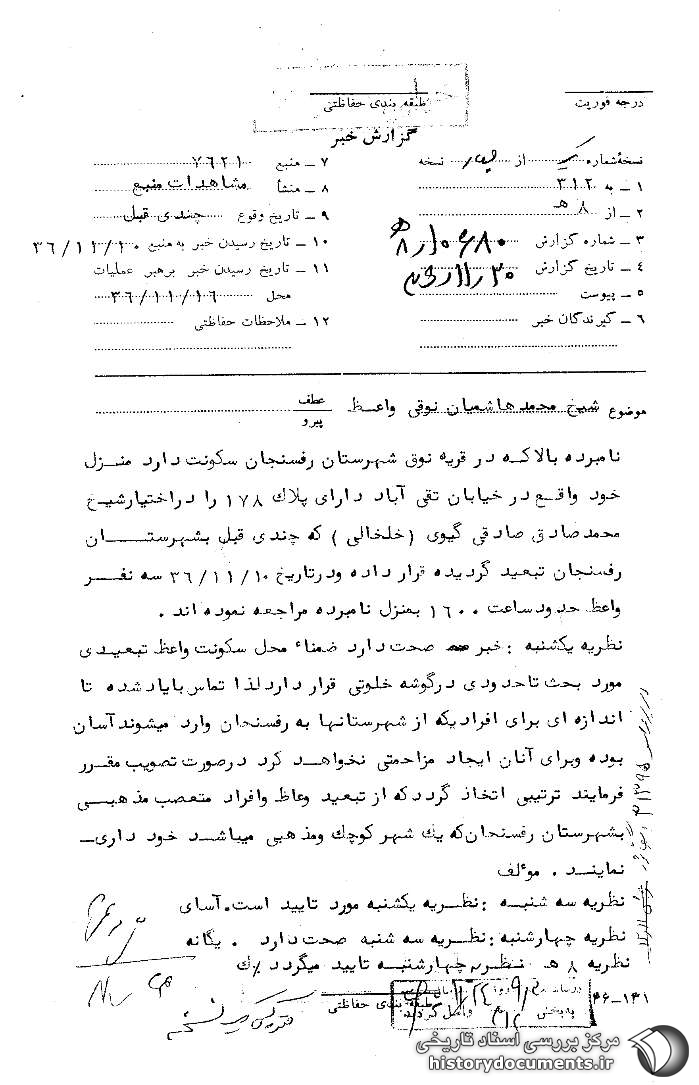 درجه فوریت
طبقه بندی حفاظتی
گزارش خبر
نسخه شماره یک از چهار نسخه
۱ ـ به ۳۱۲
۲ ـ از ۸ هـ
۳ ـ شماره گزارش
۴ ـ تاریخ گزارش
۵ ـ پیوست
۶ ـ گیرندگان خبر
۷ ـ منبع ۷۶۲۱
۸ ـ منشأ مشاهدات منبع
۹ ـ تاریخ وقوع چندی قبل
۱۰ ـ تاریخ رسیدن خبر به منبع ۳۶/۱۱/۱۰
۱۱ ـ تاریخ رسیدن خبر برهبر عملیات
محل ۳۶/۱۱/۱۶
۱۲ ـ ملاحظات حفاظتی
موضوع شیخ محمد هاشمیان نوقی واعظ
عطف
پیرو
نامبرده بالاکه در قریه نوق شهرستان رفسنجان سکونت دارد منزل
خود واقع در خیابان تقی آباد دارای پلاک ۱۷۸ را دراختیارشیخ
محمدصادق صادقی گیوی (خلخالی) که چندی قبل بشهرستان
رفسنجان تبعید گردیده قرار داده ودرتاریخ ۳۶/۱۱/۱۰ سه نفر
واعظ حدودساعت ۱۶۰۰ بمنزل نامبرده مراجعه نموده اند .
نظریه یکشنبه : خبر صحت دارد ضمناً محل سکونت واعظ تبعیدی
مورد بحث تاحدودی درگوشه خلوتی قرار داردلذا تماس بایادشده تا
اندازه ای برای افرادیکه از شهرستانها به رفسنجان وارد میشوندآسان
بوده وبرای آنان ایجاد مزاحمتی نخواهد کرد درصورت تصویب مقرر
فرمایند ترتیبی اتخاذ گرددکه از تبعید وعاظ وافراد متعصب مذهبی
بشهرستان رفسنجان‌که یک شهر کوچک ومذهبی میباشد خود داری ـ
نمایند . مؤلف
نظریه سه شنبه : نظریه یکشنبه مورد تایید است.آسای
نظریه چهارشنبه : نظریه سه شنبه صحت دارد . یگانه
نظریه ۸ هـ نظریه چهارشنبه تایید میگردد
طبقه بندی حفاظتی
۳۶-۱۳۱
مرکز بررسی اسناد تاریخی
historydocuments.ir